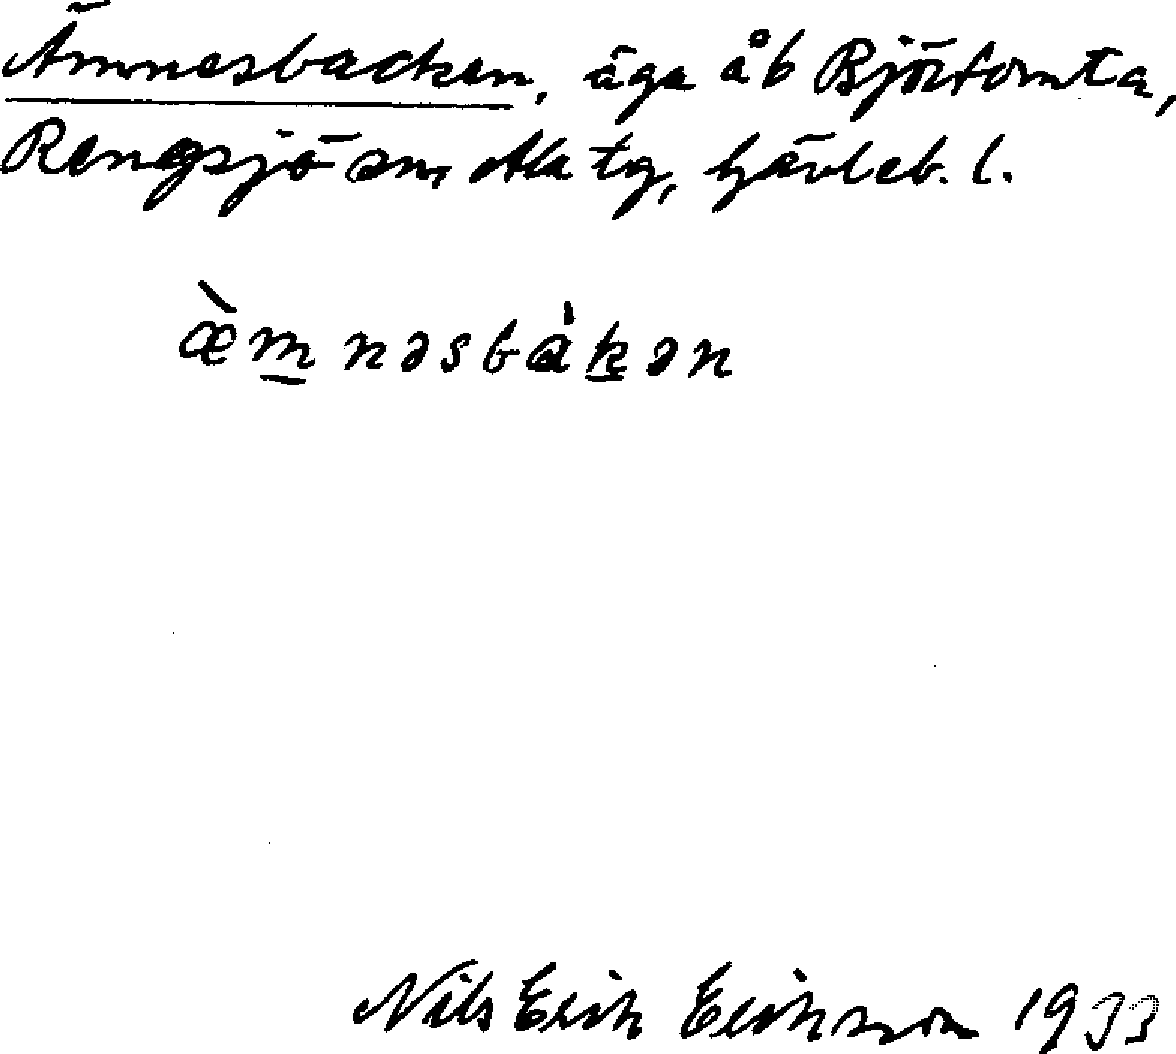 Ämnesbacken, äga åb Björtomta,
Rengsjö sn, Ala tg, Gävleb. l.
æ̀m̲nəsbàk̲ən
Nils Erik Eriksson 1933